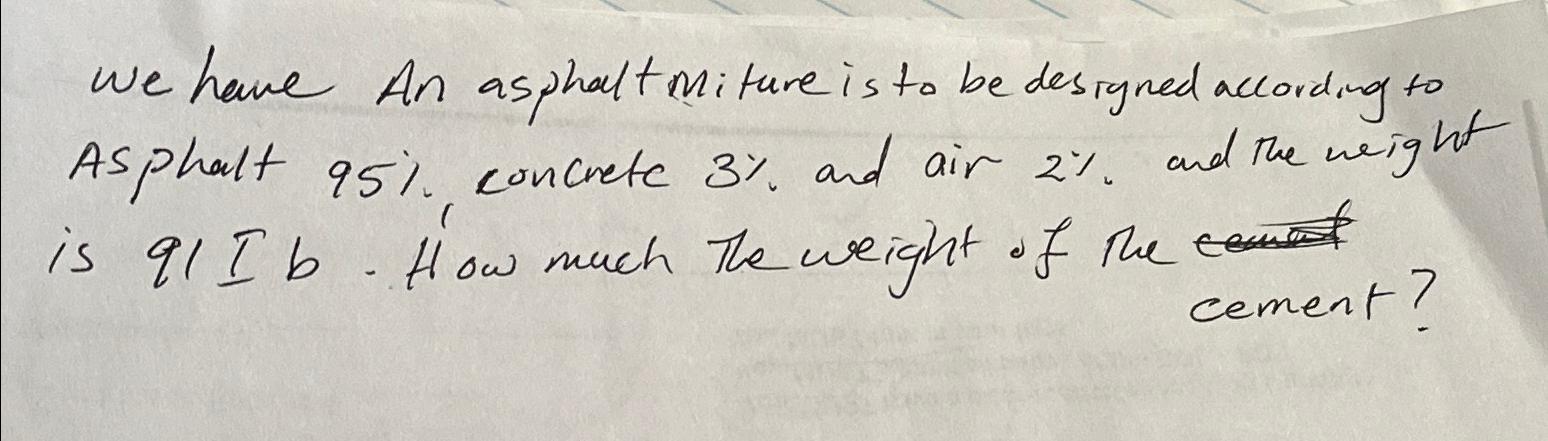 we have An asphalt miture is to be designed according to
Asphalt 95%, concrete 3% and air 2% and The weight
is 91 Ib. How much The weight of The cement
cement?